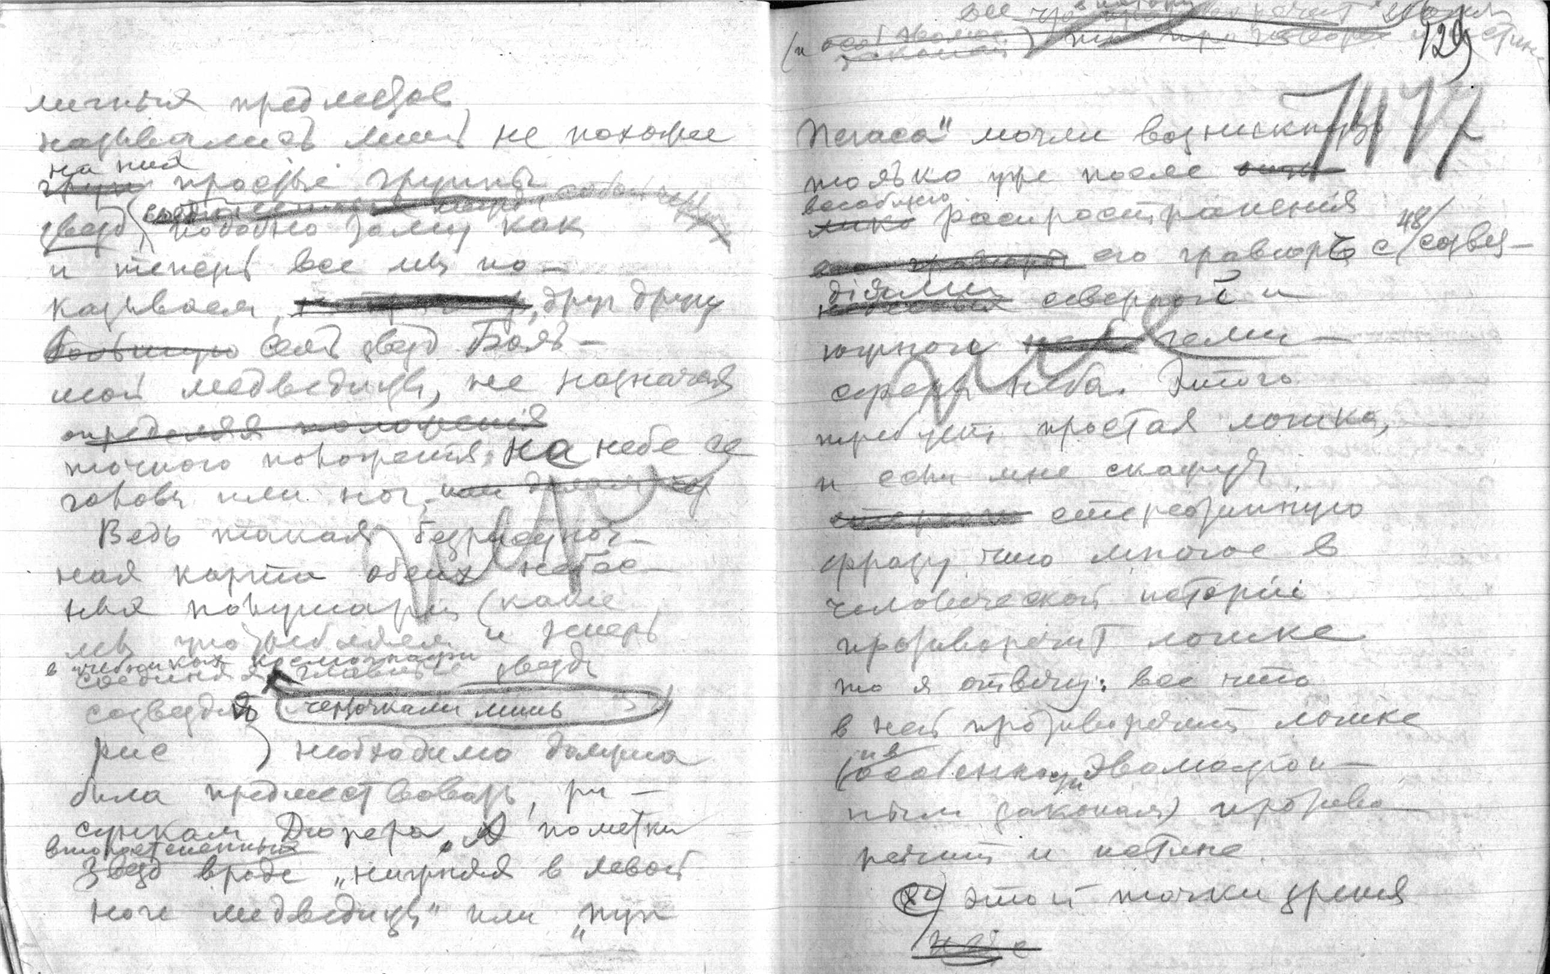 личныя предметов
назывались лишь не похожие
на них
простые группы
звезд подобно тому как
и теперь все мы по-
казываем, друг другу
большую семь звезд Боль-
шой медведицы, не назначая
определяя положения
точного положения на небе ее
головы или ног
Ведь такая безрисуноч-
ная карта обеих небес-
ных полушарий (какие
мы употребляем и теперь
в учебниках космографии
соединяя главные звезды
созвездия черточками лишь
) необходимо должна
была предшествовать ри-
сункам Дюрера, а пометки
второстепенных
звезд вроде „нижняя в левой
ноге медведицы" или „пуп
129
7417
Пегаса" могли возникнуть
только уже после
всеобщего
распространения
его гравюръ с 48/созвез-
діями северной и
южного геми-
сферы неба. Этого
требует простая логика,
и если мне скажут
стереотипную
фразу что многое в
человеческой исторіи
противоречит логике
то я отвечу: все что
в ней противоречит логике
(и в
особенности эвольюцион-
ным законам) противо-
речит и истине.
С этой точки зрения